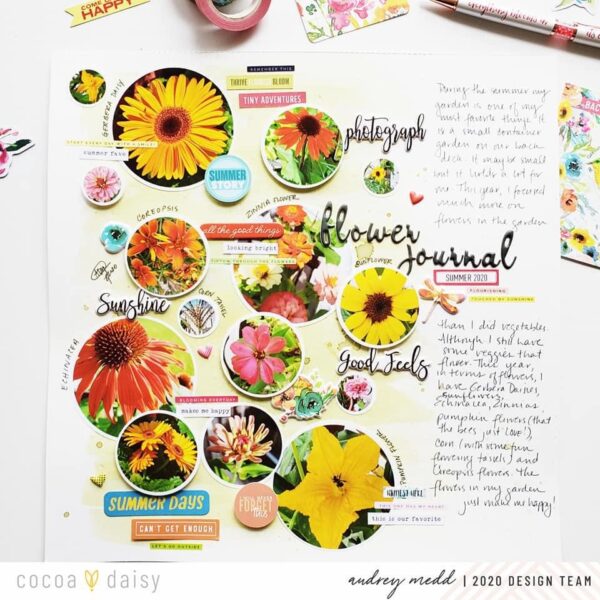 COME ON GET
HAPPY
everyday life can b
BAC
REMEMBER THIS
THRIVE BLOOM
TINY ADVENTURES
GERBERA DAISY
START EVERY DAY WITH A SMILE
summer fave
SUMMER
STORY
photograph
During the summer my
garden is one of my
most favorite things. It
is a small container
garden on our back
deck. It may be small
but it holds a lot for
me. This year, I focused
much more on
flowers in the garden
COREOPSIS
ZINNIA FLOWER
all the good things
looking bright
TIPTOE THROUGH THE FLOWERS
flower
journal
SUMMER 2020
FLOURISHING
TOUCHED BY SUNSHINE
SUNFLOWER
Sunshine
CORN TASSEL
than I did vegetables.
Although I still have
some veggies that
flower. This year,
in terms of flowers, I
have Gerbera Daisies,
sunflowers,
Echinacea, Zinnias
pumpkin flowers (that
the bees just love!),
corn (with some fun
flowering tassels) and
Coreopsis flowers. The
flowers in my garden
just make me happy!
Good Feels
ECHINACEA
BLOOMING EVERYDAY
makes me happy
PUMPKIN FLOWER
SUMMER DAYS
CAN'T GET ENOUGH
LET'S GO OUTSIDE
NEVER
FORGET
THIS
THIS ONE HAS MY HEART
this is our favorite
cocoa daisy
audrey medd | 2020 DESIGN TEAM